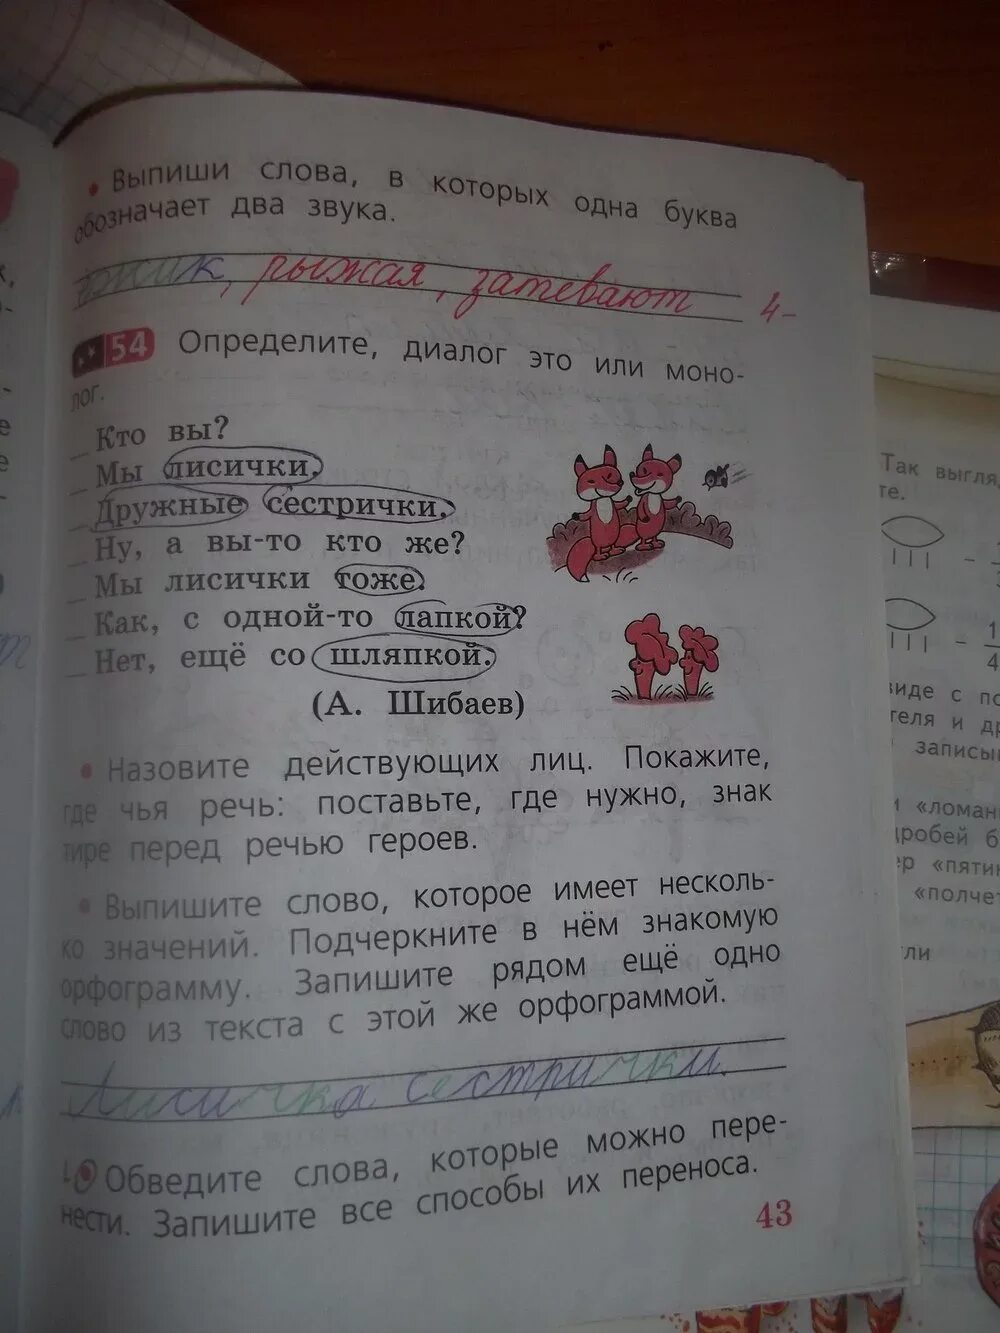 • Выпиши слова, в которых одна буква
обозначает два звука.
ёжик, рыжая, затевают 4-
54 Определите, диалог это или моно-
лог.
_ Кто вы?
_ Мы лисички,
_ Дружные сестрички.
_ Ну, а вы-то кто же?
_ Мы лисички тоже.
_ Как, с одной-то лапкой?
_ Нет, ещё со шляпкой.
(А. Шибаев)
• Назовите действующих лиц. Покажите,
где чья речь: поставьте, где нужно, знак
тире перед речью героев.
• Выпишите слово, которое имеет несколь-
ко значений. Подчеркните в нём знакомую
орфограмму. Запишите рядом ещё одно
слово из текста с этой же орфограммой.
Лисичка сестрички.
• Обведите слова, которые можно пере-
нести. Запишите все способы их переноса.
43
Так выгля
те.
1
4
виде с
теля и
записы
«ломан
дробей б
«пяти
«полче